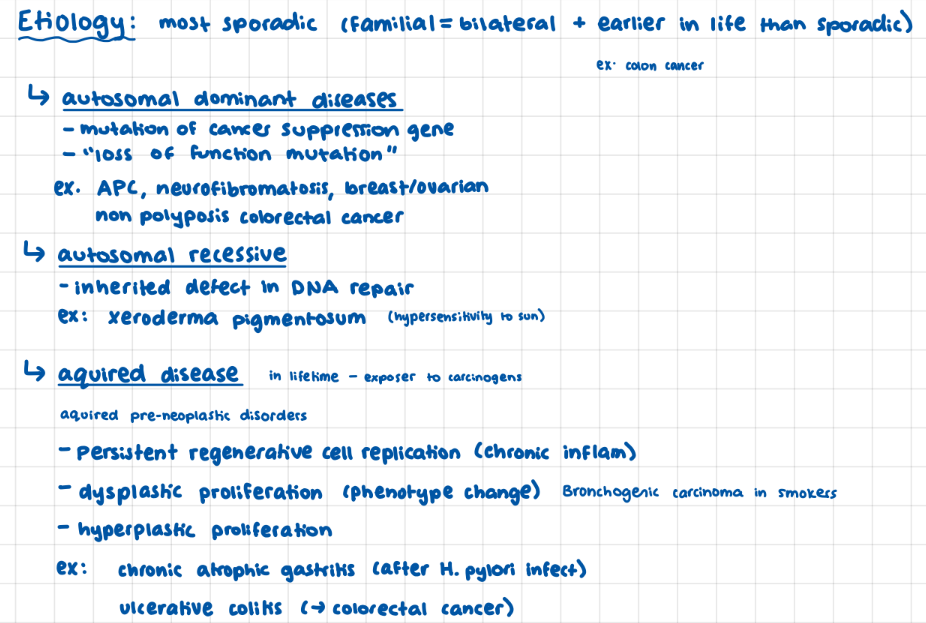 Etiology: most sporadic (familial = bilateral + earlier in life than sporadic)
ex: colon cancer
↳ autosomal dominant diseases
- mutation of cancer suppression gene
- "loss of function mutation"
ex. APC, neurofibromatosis, breast/ovarian
non polyposis colorectal cancer
↳ autosomal recessive
- inherited defect in DNA repair
ex: xeroderma pigmentosum (hypersensitivity to sun)
↳ aquired disease in lifetime - exposer to carcinogens
aquired pre-neoplastic disorders
- Persistent regenerative cell replication (chronic inflam)
- dysplastic proliferation (phenotype change) Bronchogenic carcinoma in smokers
- hyperplastic proliferation
ex: chronic atrophic gastritis (after H. pylori infect)
ulcerative colitis (→ colorectal cancer)